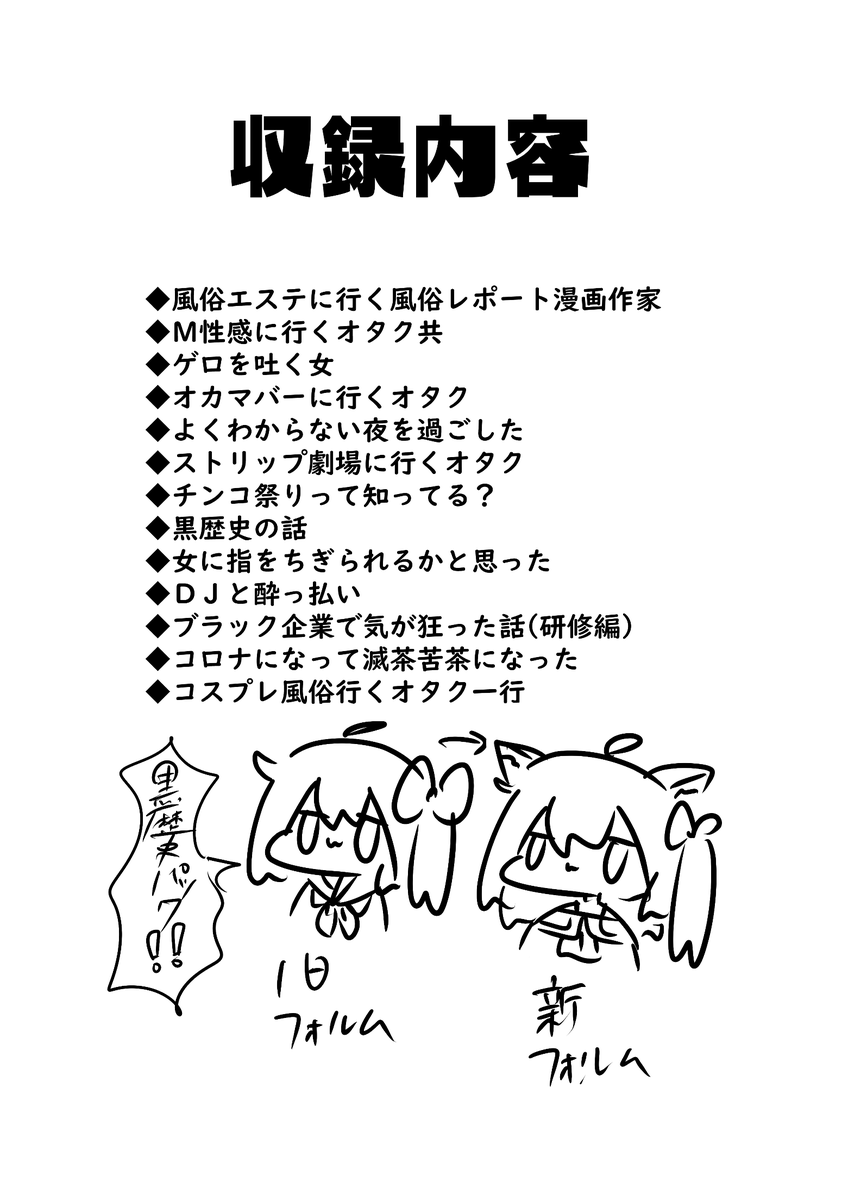 収録内容
◆風俗エステに行く風俗レポート漫画作家
◆Ｍ性感に行くオタク共
◆ゲロを吐く女
◆オカマバーに行くオタク
◆よくわからない夜を過ごした
◆ストリップ劇場に行くオタク
◆チンコ祭りって知ってる？
◆黒歴史の話
◆女に指をちぎられるかと思った
◆ＤＪと酔っ払い
◆ブラック企業で気が狂った話(研修編)
◆コロナになって滅茶苦茶になった
◆コスプレ風俗行くオタク一行
黒歴史パック!!
旧
フォルム
新
フォルム